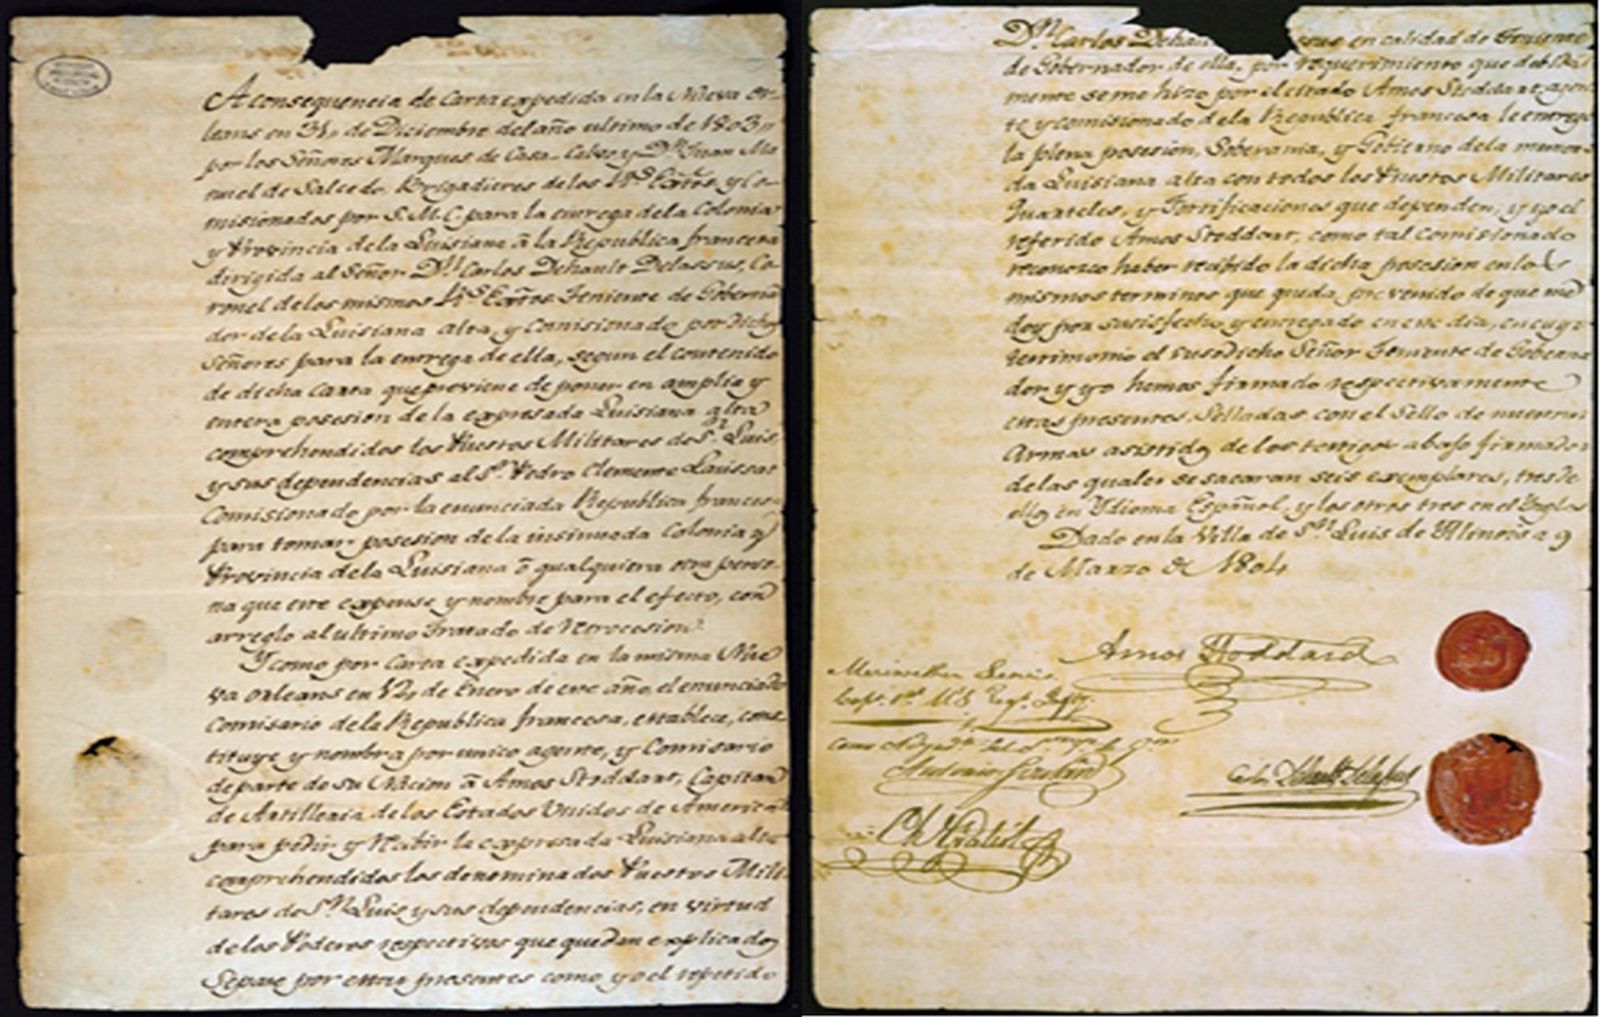 A consequencia de Carta expedida en la Nueva Or-
leans en 31,, de Diciembre del año ultimo de 1803,,
por los Señores Marques de Casa-Calvo y Dn. Juan Ma-
nuel de Salcedo, Brigadieres de los Rs. Extos. y Co-
misionados por S.M.C. para la entrega de la Colonia
y Provincia de la Luisiana â la Republica francesa
dirigida al Señor Dn. Carlos Dehault Delassus, Co-
ronel de los mismos Rs. Extos. Teniente de Goberna
dor de la Luisiana alta, y Comisionado por dichos
Señores para la entrega de ella, segun el contenido
de dicha Carta que previene de poner en amplia y
entera posesion de la expresada Luisiana alta
comprehendidos los Puestos Militares de Sn. Luis,
y sus dependencias al Sr. Pedro Clemente Laussat
Comisionado por la enunciada Republica francesa
para tomar posesion de la insinuada Colonia y
Provincia de la Luisiana ô qualquiera otra perso-
na que este expense y nombre para el efecto, con
arreglo al ultimo Tratado de Retrocesion.
Y como por Carta expedida en la misma Nue
va Orleans en 12,, de Enero de este año, el enunciado
Comisario de la Republica francesa, establece, cons
tituye y nombra por unico agente, y Comisario
de parte de su Nacion â Amos Stoddart, Capitan
de Artilleria de los Estados Unidos de America
para pedir y Recibir la expresada Luisiana alta
comprehendidos los denominados Puestos Mili
tares de Sn. Luis y sus dependencias, en virtud
de los Poderes respectivos que quedan explicados
Sepase por estas presentes como yo el repetido
Dn. Carlos Dehau que en calidad de Teniente
de Gobernador de ella, por requerimiento que debida
mente se me hizo por el citado Amos Stoddart, agen
te y comisionado de la Republica francesa le entregé
la plena posesion, Soberania, y Gobierno de la menciona
da Luisiana alta con todos los Puestos Militares
Quarteles, y Fortificaciones que dependen; y yo el
referido Amos Stoddart, como tal Comisionado
reconosco haber recibido la dicha posesion en los
mismos terminos que queda prevenido de que me
doy por satisfecho y entregado en este dia, en cuyo
testimonio el susodicho Señor Teniente de Goberna
dor y yo hemos firmado respectivamente
estas presentes, Selladas con el Sello de nuestras
Armas asistidos de los testigos abajo firmados
de las quales se sacaran seis exemplares, tres de
ellos en Ydioma Español, y los otros tres en el Yngles
Dado en la Villa de Sn. Luis de Ylinoes a 9
de Marzo de 1804
Amos Stoddard
Meriwether Lewis
Capt. 1st. U.S. Regt. Infty.
Antonio Soulard
Carlos Dehault Delassus
Ch Gratiot